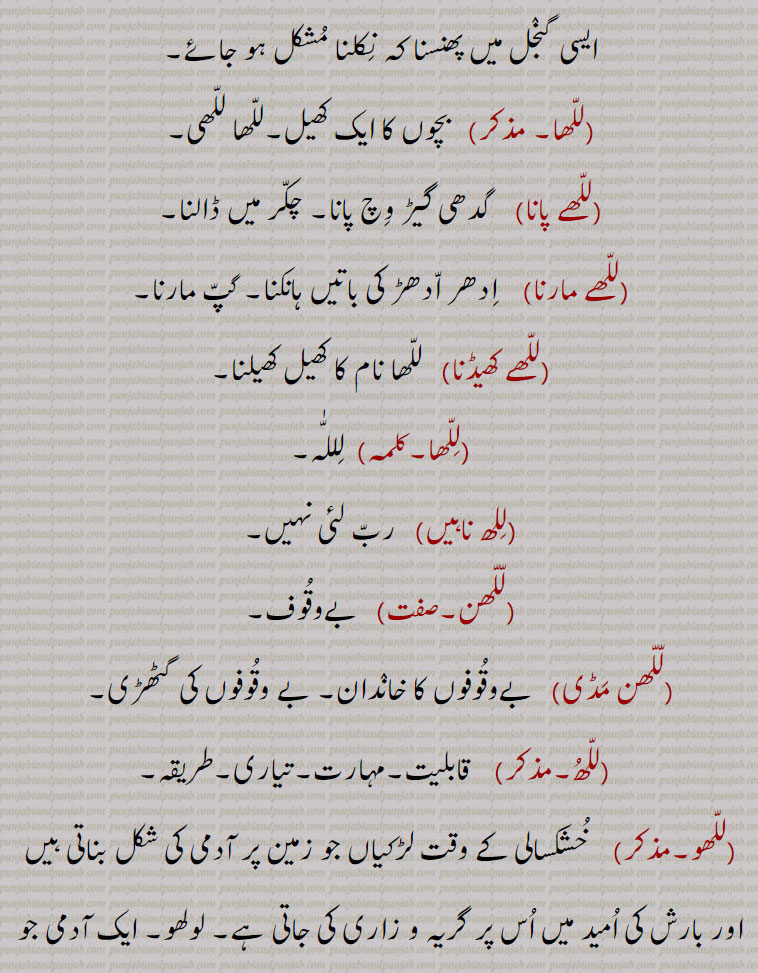 ایسی گنجٗل میں پھنسنا کہ نِکلنا مُشکل ہو جائے۔
(للّھا۔ مذکر) بچوں کا ایک کھیل۔للّھا للّھی۔
(للّھے پانا) گدھی گیڑ وِچ پانا۔ چکّر میں ڈالنا۔
(للّھے مارنا) اِدھر اّدھڑ کی باتیں ہانکنا۔ گپّ مارنا۔
(للّھے کھیڈنا) للّھا نام کا کھیل کھیلنا۔
(لِلّھا۔کلمہ) لِللّٰہ۔
(لِلھ ناہیں) ربّ لئی نہیں۔
(للّھن۔صفت) بےوقُوف۔
(للّھن مَڈی) بےوقُوفوں کا خانٛدان۔ بے وقُوفوں کی گٹھڑی۔
(للّھُ۔مذکر) قابلیت۔مہارت۔تیاری۔طریقہ۔
(للّھو۔مذکر) خُشکسالی کے وقت لڑکیاں جو زمین پر آدمی کی شکل بناتی ہیں
اور بارش کی اُمید میں اُس پر گریہ و زاری کی جاتی ہے۔ لولھو۔ ایک آدمی جو